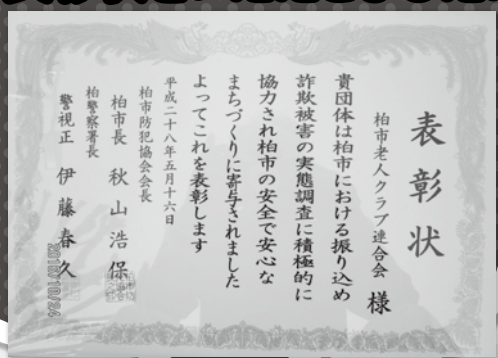 表彰状
柏市老人クラブ連合会 様
貴団体は柏市における振り込め
詐欺被害の実態調査に積極的に
協力され柏市の安全で安心な
まちづくりに寄与されました
よってこれを表彰します
平成二十八年五月十六日
柏市防犯協会会長
柏市長 秋山浩保
柏警察署長
警視正 伊藤春久
2016/10/24